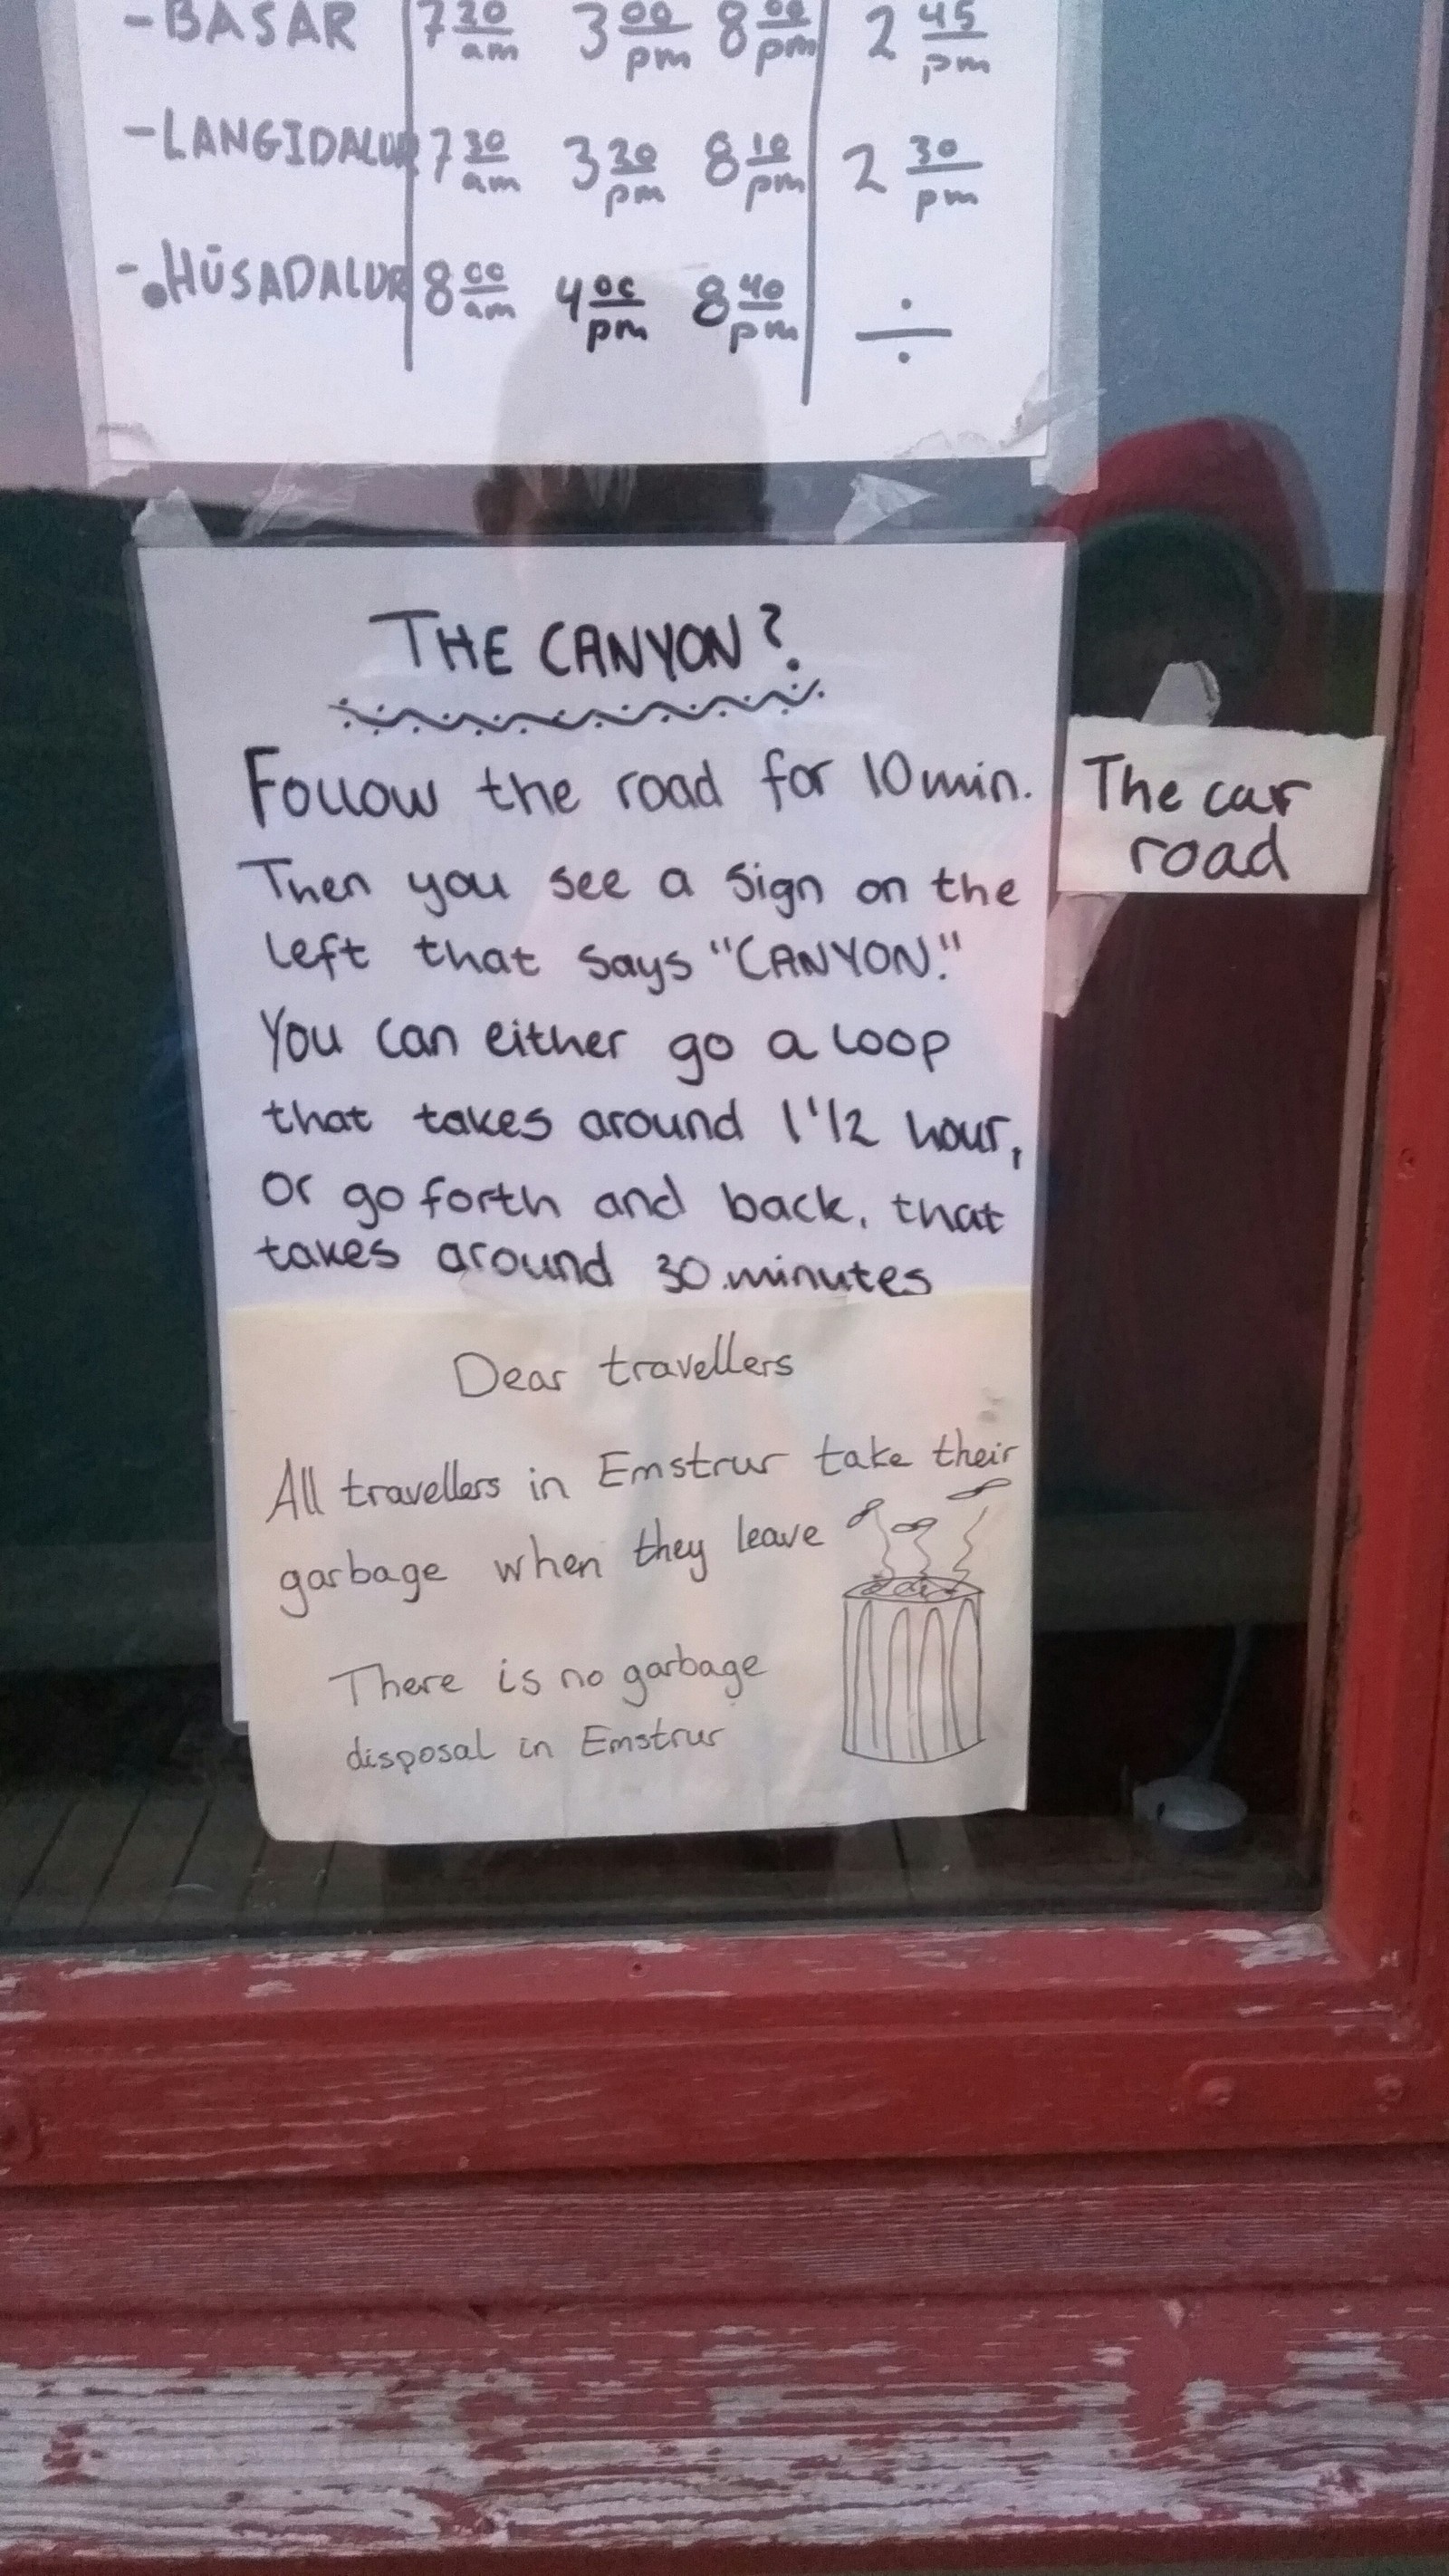 - BASAR 7 20 am 3 00 pm 8 00 pm 2 45 pm
- LANGIDALUR 7 30 am 3 20 pm 8 10 pm 2 30 pm
- HÚSADALUR 8 00 am 4 00 pm 8 40 pm ÷
THE CANYON?
Follow the road for 10 min.
The car
road
Then you see a sign on the
left that says "CANYON."
You can either go a loop
that takes around 1 1/2 hour,
or go forth and back, that
takes around 30 minutes
Dear travellers
All travellers in Emstrur take their
garbage when they leave
There is no garbage
disposal in Emstrur